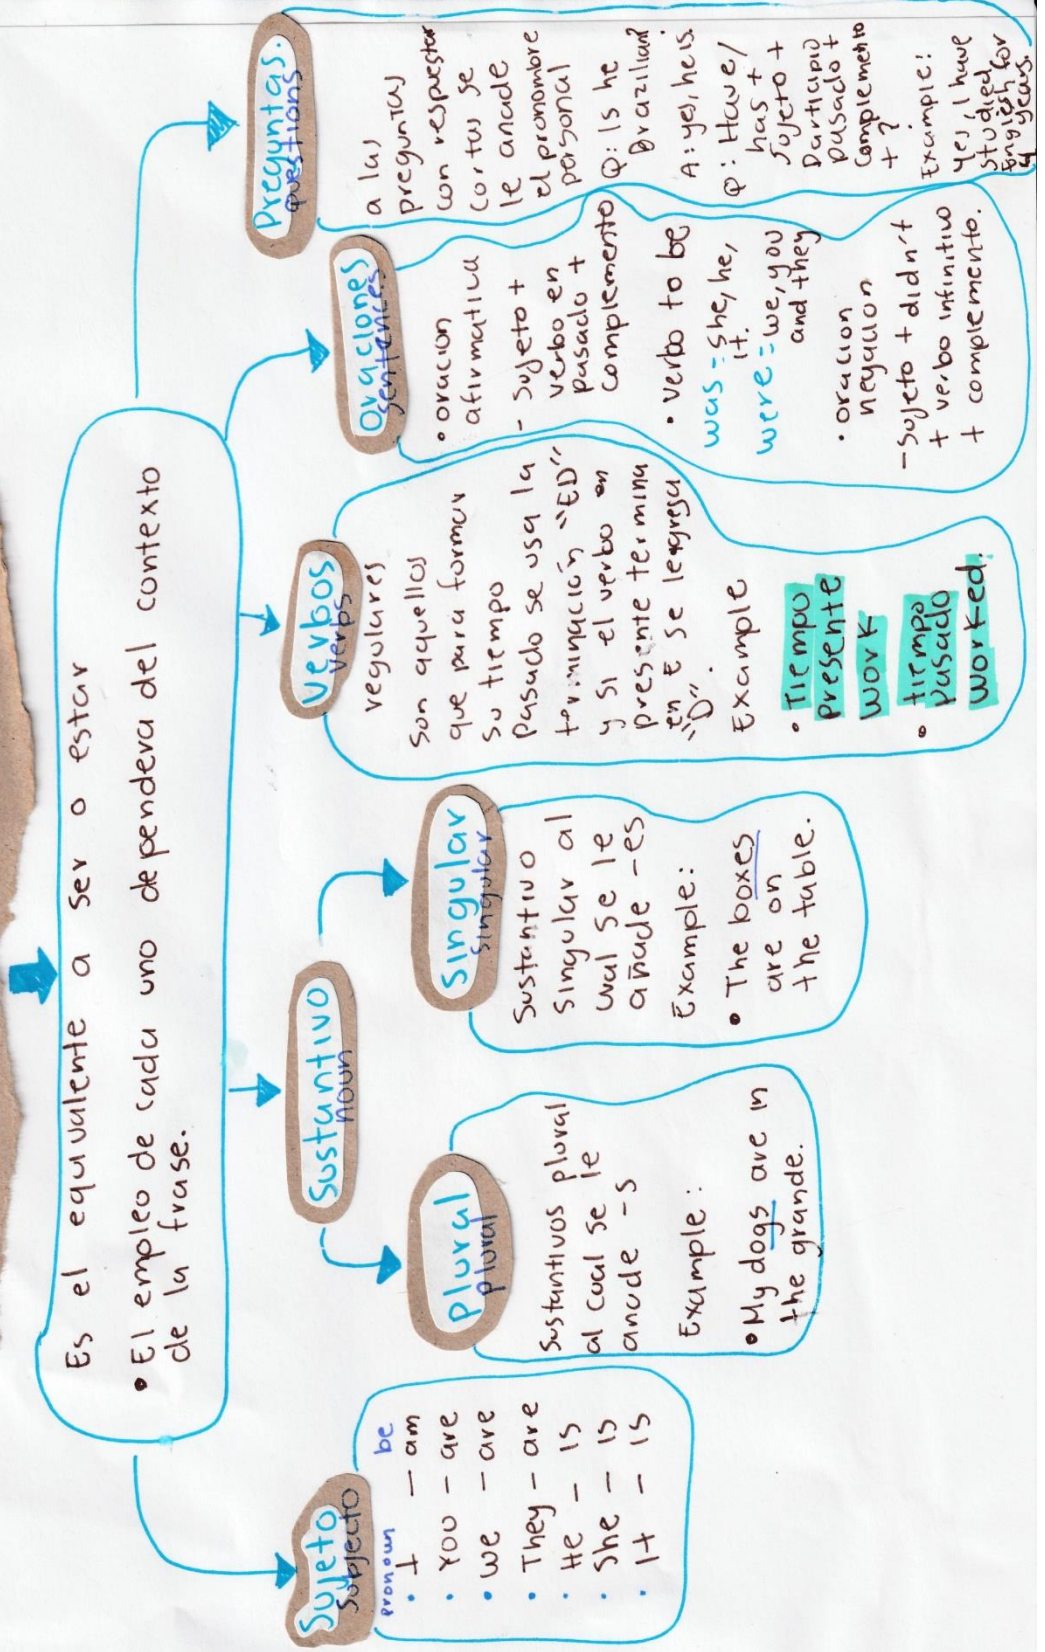 Es el equivalente a ser o estar
• El empleo de cada uno dependera del contexto
de la frase.
Sujeto
Subjecto
pronoun be
• I — am
• You — are
• We — are
• They — are
• He — is
• She — is
• It — is
Sustantivo
noun
plural
plural
Sustantivos plural
al cual se le
anade -s
Example:
• My dogs are in
the grande.
Singular
singular
Sustantivo
singular al
cual se le
añade -es
Example:
• The boxes
are on
the table.
Verbos
verbs
regulares
Son aquellos
que para formar
su tiempo
pasado se usa la
terminación "ED"
y si el verbo en
presente termina
en E se le regresa
"D".
Example
• Tiempo
presente
work
• tiempo
pasado
worked.
Oraciones
sentences
• oracion
afirmativa
- Sujeto +
verbo en
pasado +
complemento
• verbo to be
was = she, he,
it.
were = we, you
and they
• oracion
negacion
- Sujeto + didn't
+ verbo infinitivo
+ complemento.
Preguntas.
questions
a las
preguntas
con respuestas
cortas se
le anade
el pronombre
personal
Q: Is he
Brazilian?
A: yes, he is.
Q: Have/
has +
Sujeto +
participio
pasado +
complemento
+ ?
Example:
Yes, I have
studied
English for
4 years.